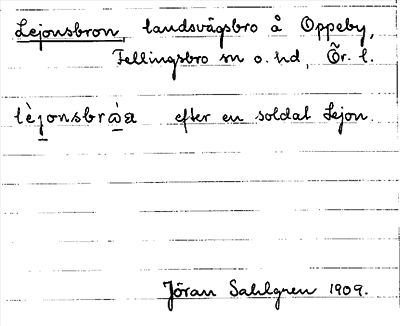 Lejonsbron, landsvägsbro å Oppeby,
Fellingsbro sn o. hd, Ör. l.
lè̱jonsbrὼ̱a efter en soldat Lejon.
Jöran Sahlgren 1909.